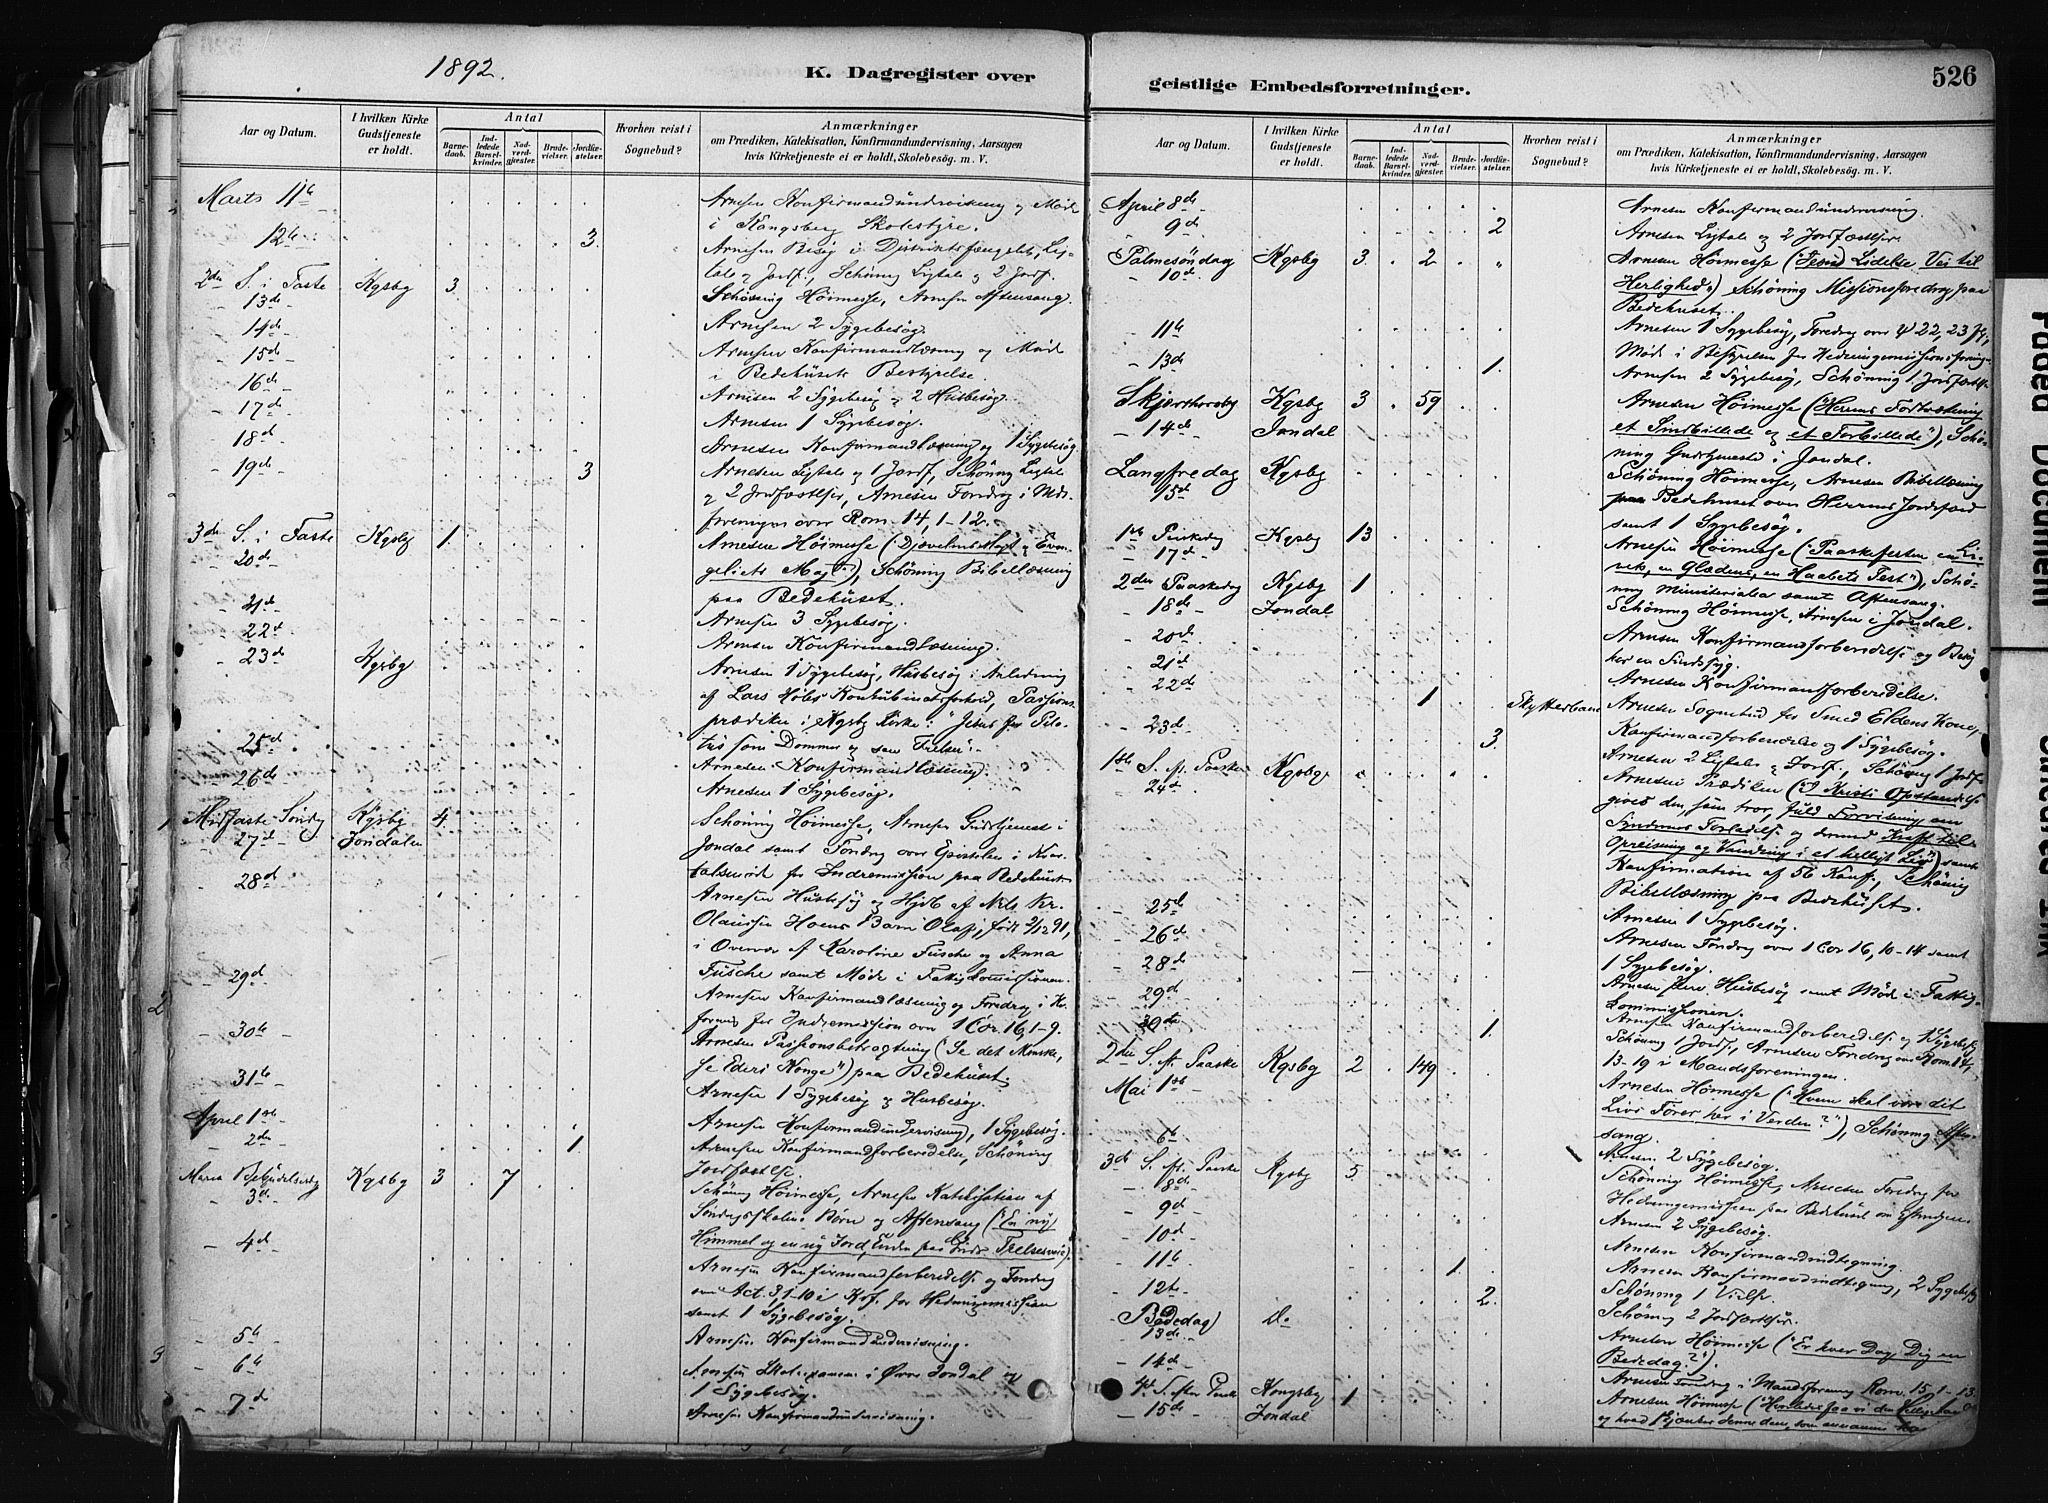 1892.
K. Dagregister over
geistlige Embedsforretninger.
526
Aar og Datum.
I hvilken Kirke Gudstjeneste er holdt.
Antal
Barnedaab.
Indledede Barselkvinder.
Nadverdgjester.
Brudevielser.
Jordfæstelser.
Hvorhen reist i Sognebud?
Anmærkninger
om Prædiken, Katekisation, Konfirmandundervisning, Aarsagen
hvis Kirketjeneste ei er holdt, Skolebesøg. m. V.
Marts 11te Arnesen Konfirmandundervisning og Møde
i Kongsberg Skolestyre.
12te 3. Arnesen Besøg i Distriktsfængslet, Lig-
tale og Jordf., Schøning Ligtale og 2 Jordf.
2den S. i Faste Kgsbg 3. Schøning Høimesse, Arnesen Aftensang.
13de
14de Arnesen 2 Sygebesøg.
15de Arnesen Konfirmandlæsning og Møde
i Bedehusets Bestyrelse.
16de Arnesen 2 Sygebesøg og 2 Husbesøg.
17de Arnesen 1 Sygebesøg.
18de Arnesen Konfirmandlæsning og 1 Sygebesøg.
19de 3 Arnesen Ligtale og 1 Jordf., Schøning Ligtale
og 2 Jordfæstelser, Arnesen Foredrag i Mds-
foreningen over Rom. 14, 1-12.
3die S. i Faste Kgsbg 1. Arnesen Høimesse (Djævelens Magt og Evan-
20de geliets Magt), Schøning Bibellæsning
paa Bedehuset.
21de Arnesen 3 Sygebesøg.
22de Arnesen Konfirmandlæsning.
23de Kgsbg Arnesen 1 Sygebesøg, Husbesøg i Anledning
af Lars Konkubinatsforhold, Passions-
prædiken i Kgsbg Kirke: "Jesus for Pila-
tus som Dommer og som Frelser".
25de Arnesen Konfirmandlæsning.
26de Arnesen 1 Sygebesøg.
Midfaste Søndag Kgsbg 4 Schøning Høimesse, Arnesen Gudstjeneste i
27de Jondalen Jondal samt Foredrag over Epistelen i Kvar-
talsmøde for Indremission paa Bedehuset.
28de Arnesen Husbesøg og Hjdb. af Nils Kr.
Olaussen Hoens Barn Olaf, født 2/12 91,
i Overvær af Karoline Fusche og Anna
Fusche samt Møde i Fattigkommissionen.
29de Arnesen Konfirmandlæsning og Foredrag i Kv.
foren. for Indremission over 1 Cor. 16, 1-9.
30te Arnesen Passionsbetragtning ("Se det Menneske,
se Eders Konge") paa Bedehuset.
31te Arnesen 1 Sygebesøg og Husbesøg.
April 1ste Arnesen Konfirmandundervisning, 1 Sygebesøg.
2den 1. Arnesen Konfirmandforberedelse, Schøning
Jordfæstelse.
Maria Bebudelsesdg Kgsbg 3. 7 Schøning Høimesse, Arnesen Katekisation af
3die Søndagsskolens Børn og Aftensang ("En ny
Himmel og en ny Jord, Enden paa Guds Frelsesvei").
4de Arnesen Konfirmandforberedelse og Foredrag
over Act. 3, 1-10 i Kvf. for Hedningemissionen
samt 1 Sygebesøg.
5te Arnesen Konfirmandundervisning.
6te Arnesen Skoleexamen i Øvre Jondal og
1 Sygebesøg.
7de Arnesen Konfirmandundervisning.
Aar og Datum.
I hvilken Kirke Gudstjeneste er holdt.
Antal
Barnedaab.
Indledede Barselkvinder.
Nadverdgjester.
Brudevielser.
Jordfæstelser.
Hvorhen reist i Sognebud?
Anmærkninger
om Prædiken, Katekisation, Konfirmandundervisning, Aarsagen
hvis Kirketjeneste ei er holdt, Skolebesøg. m. V.
April 8de Arnesen Konfirmandundervisning.
9de 2 Arnesen Ligtale og 2 Jordfæstelser.
Palmesøndag Kgsbg 3. 2. Arnesen Høimesse ("Jesus Lidelse Vei til
10de Herlighed"), Schøning Missionsforedrag paa
Bedehuset.
11te Arnesen 1 Sygebesøg, Foredrag over ψ 22, 23 ff.,
Møde i Bestyrelsen for Hedningemissionsforening.
13de 1. Arnesen 2 Sygebesøg, Schøning 1 Jordfæstelse.
Skjærthorsdg Kgsbg 3 59 Arnesen Høimesse ("Herrens Fortvætning
14de Jondal et Sindbillede og et Forbillede"), Schø-
ning Gudstjeneste i Jondal.
Langfredag Kgsbg Schøning Høimesse, Arnesen Bibellæsning
15de paa Bedehuset over Herrens Jordefærd
samt 1 Sygebesøg.
1ste Paaskedg Kgsbg 13 Arnesen Høimesse ("Paaskefesten en Li-
17de vets, en Glædens, en Haabets Fest"), Schø-
ning Ministerialia samt Aftensang.
2den Paaskedag Kgsbg 1 Schøning Høimesse, Arnesen i Jondal.
18de Jondal
20de Arnesen Konfirmandforberedelse og Besøg
hos en Sindssyg.
21de Arnesen Konfirmandforberedelse.
22de 1 Skytterbane Arnesen Sognebud for Smed Eldens Kone,
Konfirmandforberedelse og 1 Sygebesøg.
23de 3. Arnesen 2 Ligtaler og Jordf., Schøning 1 Jordf.
1ste S. f. Paaske Kgsbg Arnesen Prædiken ("I Kristi Opstandelse
24de gives den, som tror, fuld Forvisning om
Syndernes Forladelse og dermed Kraft til
Opreisning og Vandring i et helligt Liv") samt
Konfirmation af 56 Konf., Schøning
Bibellæsning paa Bedehuset.
25de Arnesen 1 Sygebesøg.
26de Arnesen Foredrag over 1 Cor 16, 10-14 samt
1 Sygebesøg.
28de Arnesen Husbesøg samt Møde i Fattig-
kommissionen.
29de Arnesen Konfirmandforberedelse og 1 Sygebesøg
30te 1. Schøning 1 Jordf., Arnesen Foredrag over Rom. 14,
13-19 i Mandsforeningen.
2den S. f. Paaske Kgsbg 2 149 Arnesen Høimesse ("Hvem skal være dit
Mai 1ste Livs Fører her i Verden?"), Schøning Aften-
sang.
6te Arnesen 2 Sygebesøg.
3die S. f. Paaske Kgsbg 5 Schøning Høimesse, Arnesen Foredrag for
8de Hedningemissionen paa Bedehuset
9de Arnesen 2 Sygebesøg.
10de Arnesen Konfirmandindtegning.
11te 1. Arnesen Konfirmandindtegning, 2 Sygebesøg
Schøning 1 Vielse.
12te 2. Schøning 2 Jordfæstelser.
Bededag Do. Arnesen Høimesse ("Er hver Dag Dig en
13de Bededag?").
14de Arnesen Foredrag i Mandsforening Rom. 15, 1-13.
4de S. efter Paaske Kongsbg 1 Arnesen Høimesse
15de Jondal og hvad
Faded Document